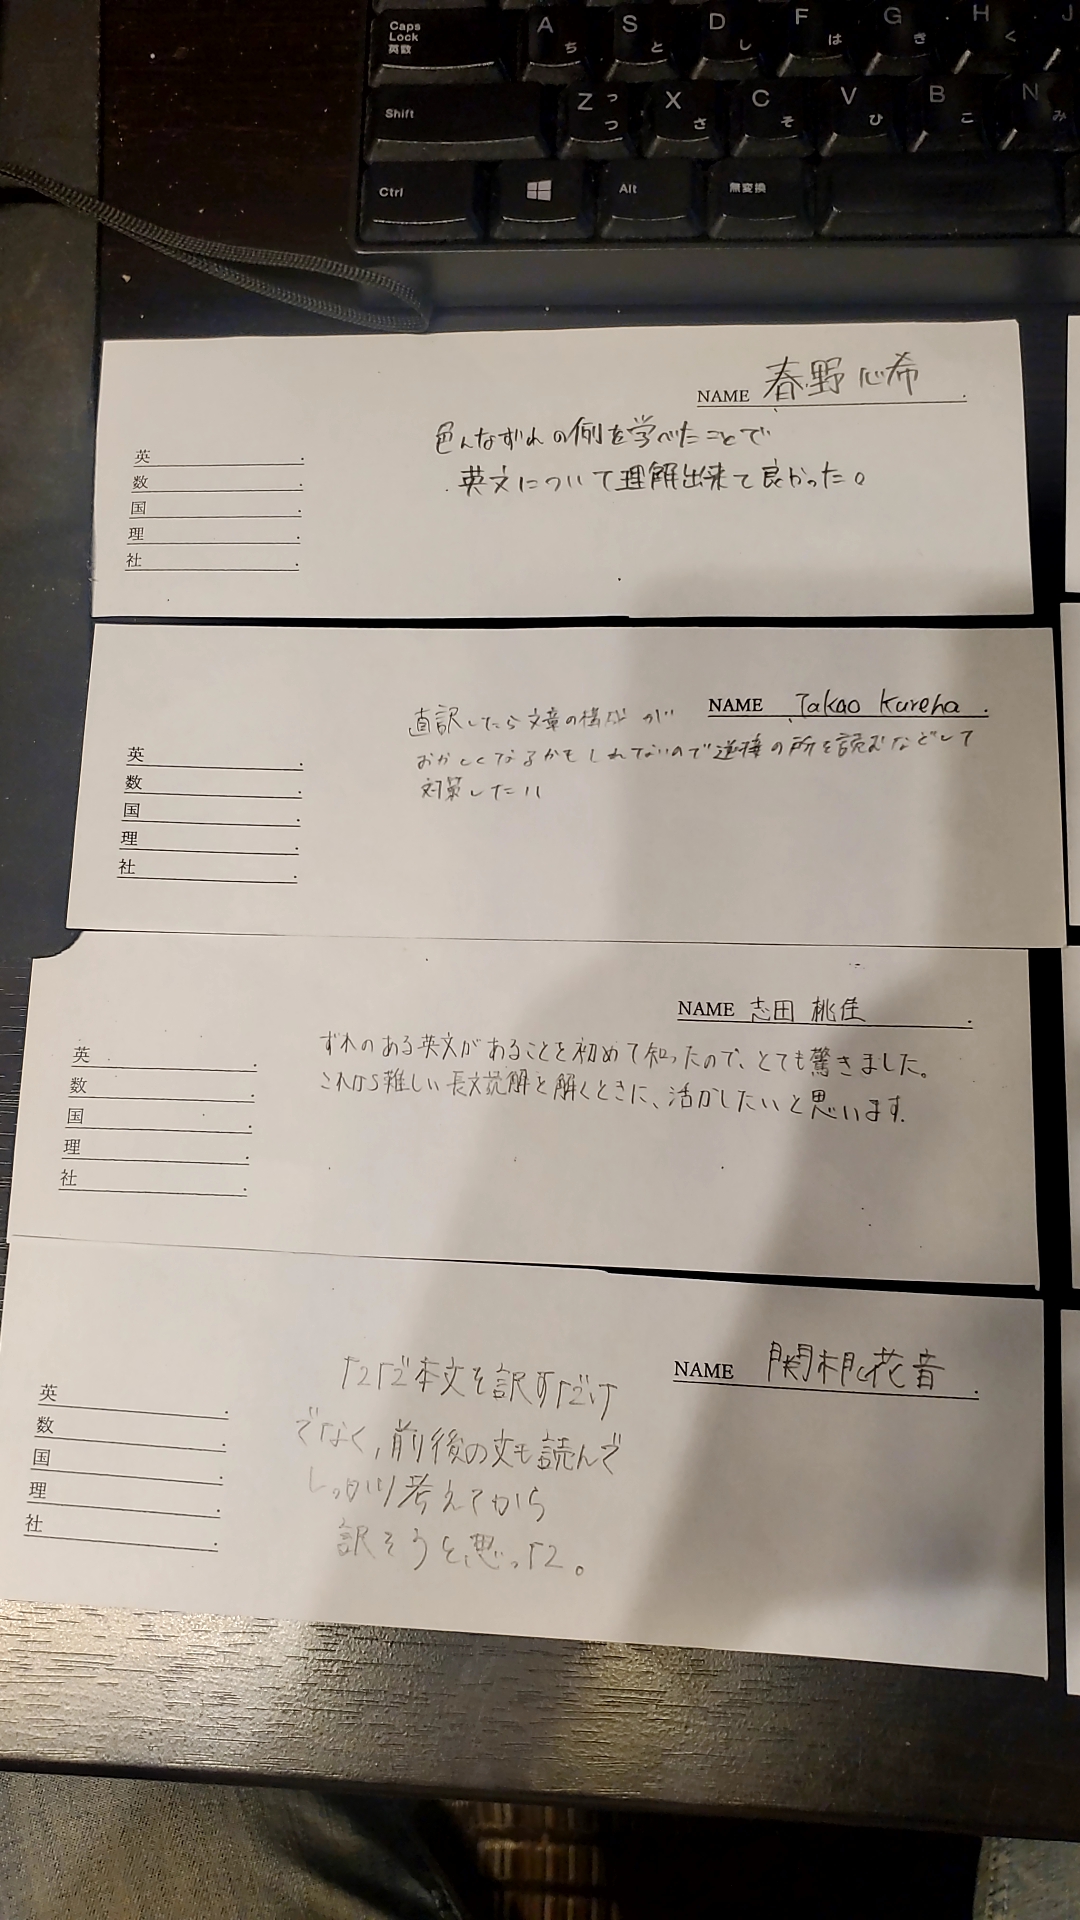 Caps Lock 英数
A ち
S と
D し
F は
G き
H く
J
Shift
Z っ つ
X さ
C そ
V ひ
B こ
N み
Ctrl
Alt
無変換
NAME 春野 心希
色んなずれの例を学べたことで
英文について理解出来て良かった。
英
数
国
理
社
NAME Takao Kureha
直訳したら文章の構成が
おかしくなるかもしれないので逆接の所を読むなどして
対策したい
英
数
国
理
社
NAME 志田 桃佳
ずれのある英文があることを初めて知ったので、とても驚きました。
これから難しい長文読解を解くときに、活かしたいと思います。
英
数
国
理
社
NAME 関根花音
ただ本文を訳すだけ
でなく,前後の文も読んで
しっかり考えてから
訳そうと思った。
英
数
国
理
社